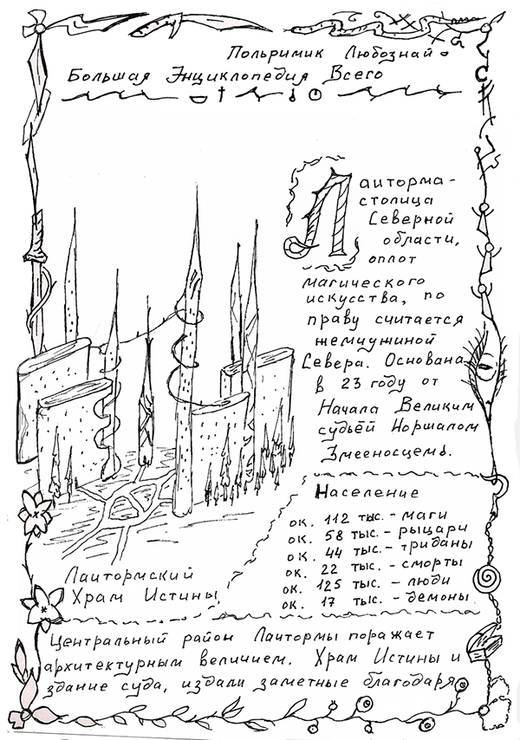 Польримик Любознай
Большая Энциклопедия Всего
Лаиторма-
столица
Северной
области,
оплот
магического
искусства, по
праву считается
жемчужиной
Севера. Основана
в 23 году от
Начала Великим
судьёй Норшалом
Змееносцем.
Население
ок. 112 тыс. - маги
ок. 58 тыс. - рыцари
ок. 44 тыс. - триданы
ок. 22 тыс. - сморты
ок. 125 тыс. - люди
ок. 17 тыс. - демоны
Лаитормский
Храм Истины
Центральный район Лаитормы поражает
архитектурным величием. Храм Истины и
здание суда, издали заметные благодаря